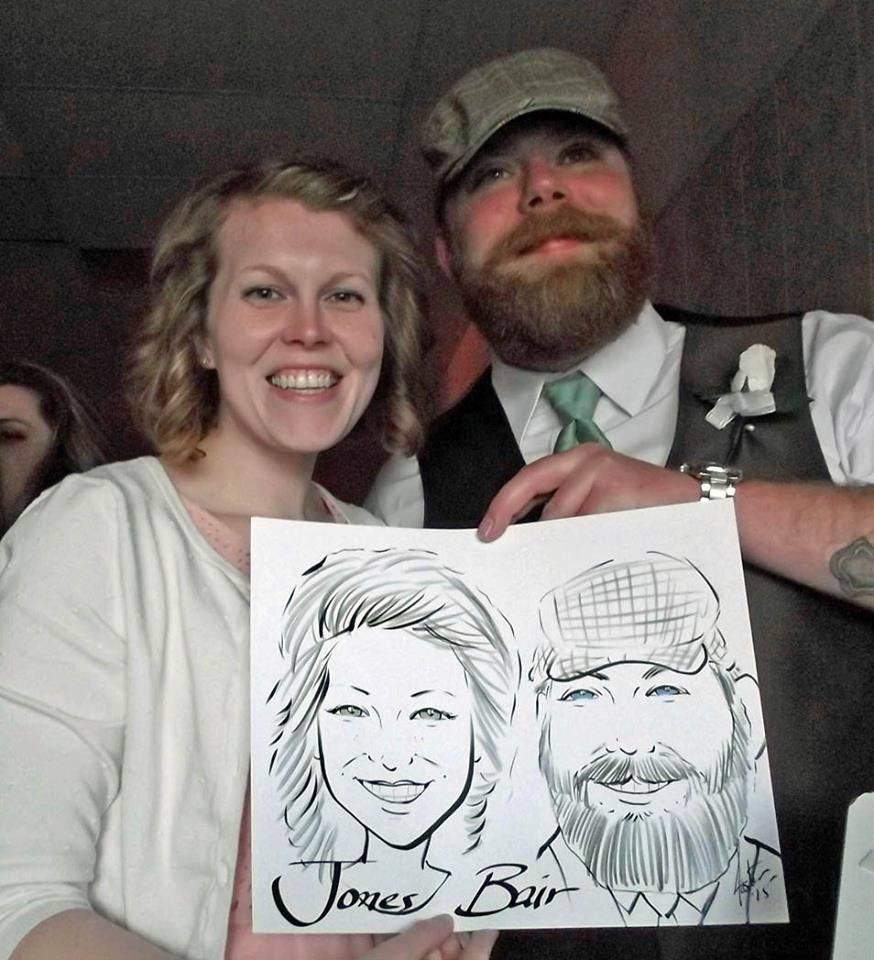 Jones Bair
15